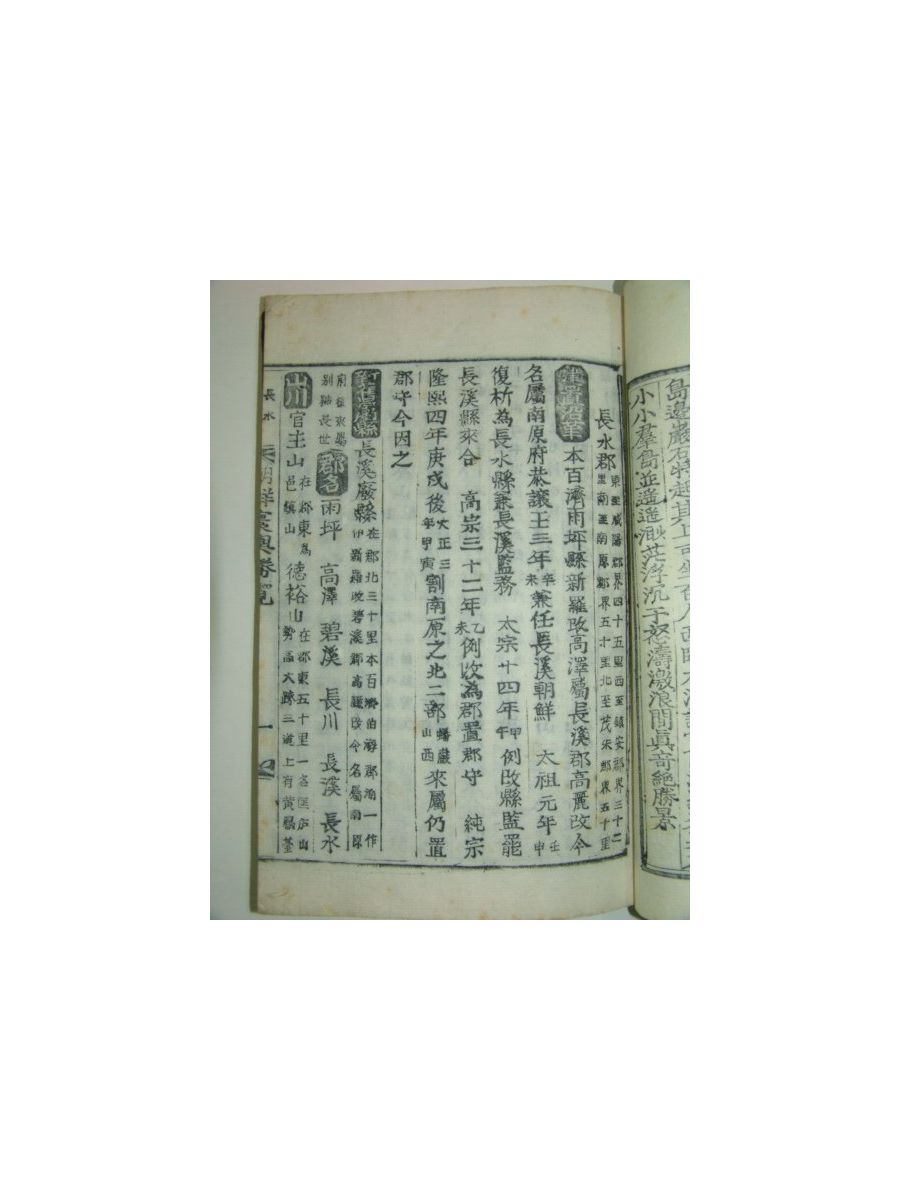 島邊巖石特起其上可坐百人西
小小羣島並遥遥㴸茫浮沉于怒濤激浪間眞奇絶勝景
長水郡 東至咸陽郡界四十五里西至鎭安郡界三十二里南至南原郡界五十里北至茂朱郡界五十里
建置沿革 本百濟雨坪縣新羅改高澤屬長溪郡高麗改今
名屬南原府恭讓王三年辛未兼任長溪朝鮮 太祖元年壬申
復析為長水縣兼長溪監務 太宗十四年甲午例改縣監罷
長溪縣來合 高宗三十二年乙未例改為郡置郡守 純宗
隆熙四年庚戌後大正三年甲寅割南原之北二部蟠巖山西來屬仍置
郡守今因之
長溪廢縣 在郡北三十里本百濟伯海郡海一作伊新羅改碧溪郡高麗改今名屬南原
府後來屬別號長世 郡名 雨坪 高澤 碧溪 長川 長溪 長水
山川 官主山 在郡東為邑鎭山 德裕山 在郡東五十里一名匡庐山勢磊大跨三道上有黃
長水 朝鮮寰輿勝覽 一